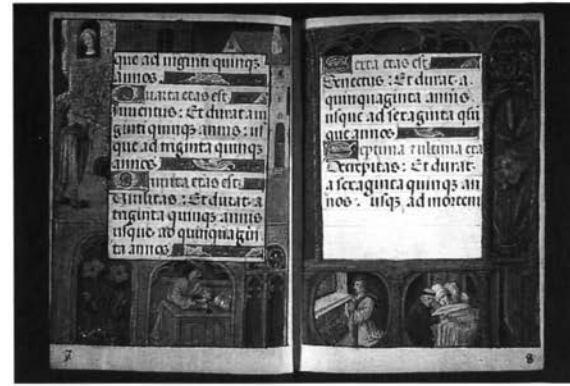 que ad uiginti quinqꝫ
annos.
Quarta etas est
Iuuentus : Et durat a ui
ginti quinqꝫ annis : us
que ad triginta quinqꝫ
annos
Quinta etas est
Uirilitas : Et durat a
triginta quinqꝫ annis
usque ad quinquagin
ta annos
7
Sexta etas est
Senectus : Et durat a
quinquaginta annis
usque ad sexaginta qui
que annos
Septima ultima eta
Decrepitas : Et durat
a sexaginta quinqꝫ an
nos . usqꝫ ad mortem
8